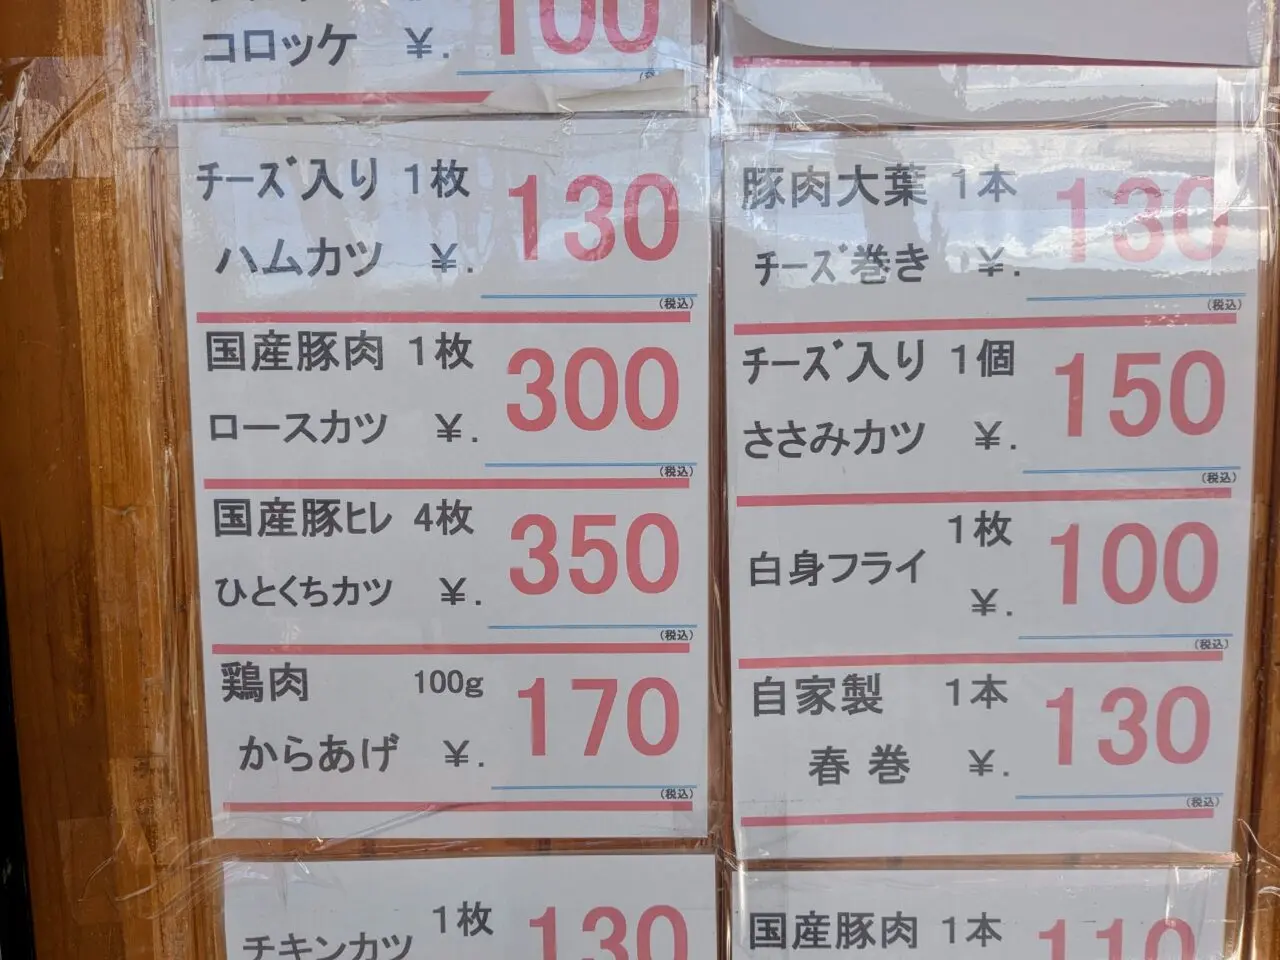 コロッケ ¥. 100
チーズ入り 1枚 130
ハムカツ ¥.
(税込)
国産豚肉 1枚 300
ロースカツ ¥.
(税込)
国産豚ヒレ 4枚 350
ひとくちカツ ¥.
(税込)
鶏肉 100g 170
からあげ ¥.
(税込)
1枚 130
チキンカツ
豚肉大葉 1本 130
チーズ巻き ¥.
(税込)
チーズ入り 1個 150
ささみカツ ¥.
(税込)
1枚 100
白身フライ
¥.
(税込)
自家製 1本 130
春巻 ¥.
(税込)
国産豚肉 1本 110